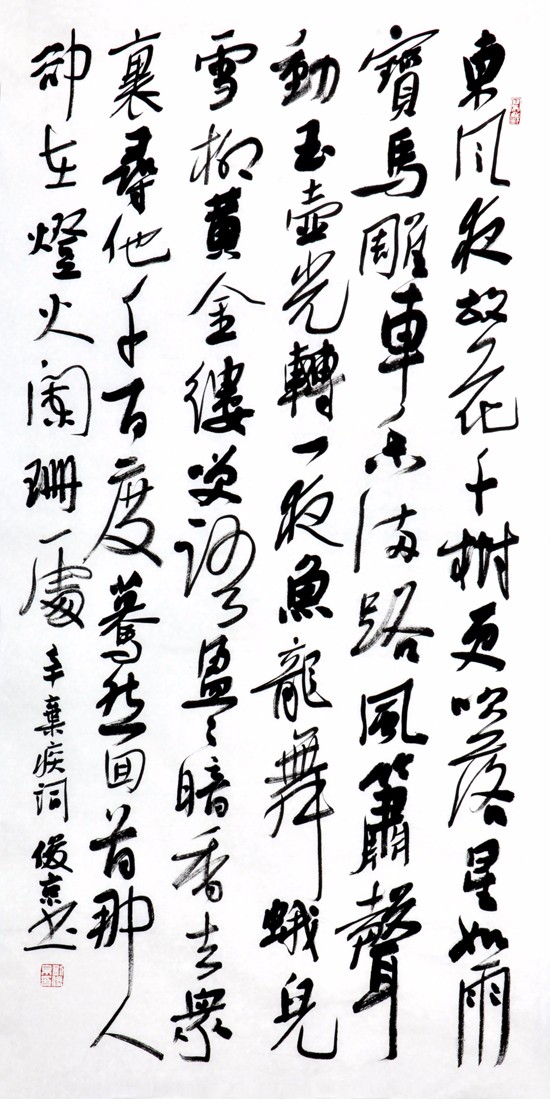 東风夜放花千樹更吹落星如雨
寶馬雕車香满路風簫聲
動玉壺光轉一夜魚龍舞蛾兒
雪柳黃金縷笑語盈〻暗香去衆
裏尋他千百度驀然回首那人
卻在燈火闌珊處 辛棄疾词 俊京书